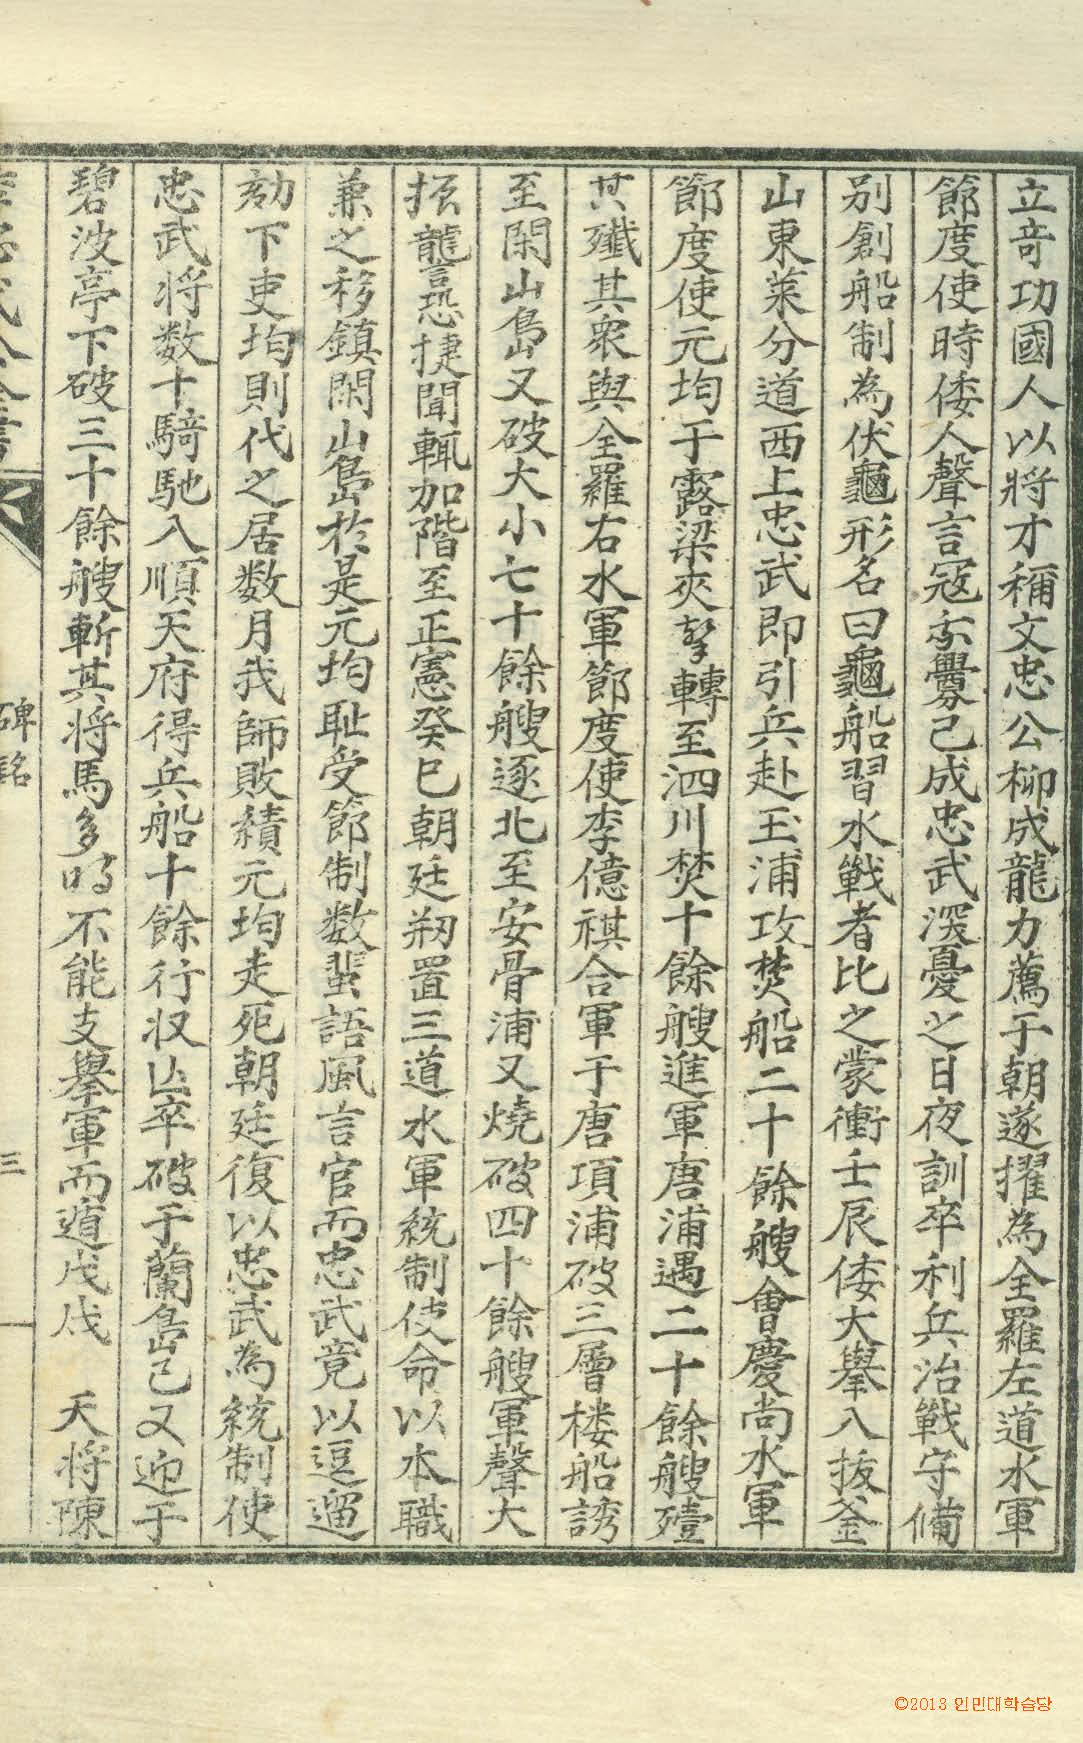 立竒功國人以將才稱文忠公柳成龍力薦于朝遂擢為全羅左道水軍
節度使時倭人聲言冦示釁已成忠武深憂之日夜訓卒利兵治戰守備
别創船制為伏龜形名曰龜船習水戰者比之蒙衝壬辰倭大擧入拔釜
山東萊分道西上忠武即引兵赴玉浦攻焚船二十餘艘會慶尚水軍
節度使元均于露梁夾擊轉至泗川焚十餘艘進軍唐浦遇二十餘艘殪
其殱其衆與全羅右水軍節度使李億祺合軍于唐項浦破三層楼船誘
至閑山島又破大小七十餘艘逐北至安骨浦又燒破四十餘艘軍聲大
振讋恐捷聞輒加階至正憲癸巳朝廷剏置三道水軍統制使命以本職
兼之移鎮閑山島於是元均耻受節制数蜚語風言官而忠武竟以逗遛
劾下吏均則代之居数月我師敗績元均走死朝廷復以忠武為統制使
忠武将数十騎馳入順天府得兵船十餘行収亾卒破于蘭島已又迎于
碧波亭下破三十餘艘斬其将馬多時不能支擧軍而遁戊戌 天将陳
碑銘
三